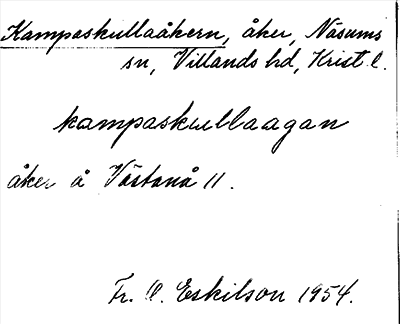 Kampaskullaåkern, åker, Näsums
sn, Villands hd, Krist. l.
kampaskullaagan
åker å Västanå 11.
Fr. Eskilson 1954.